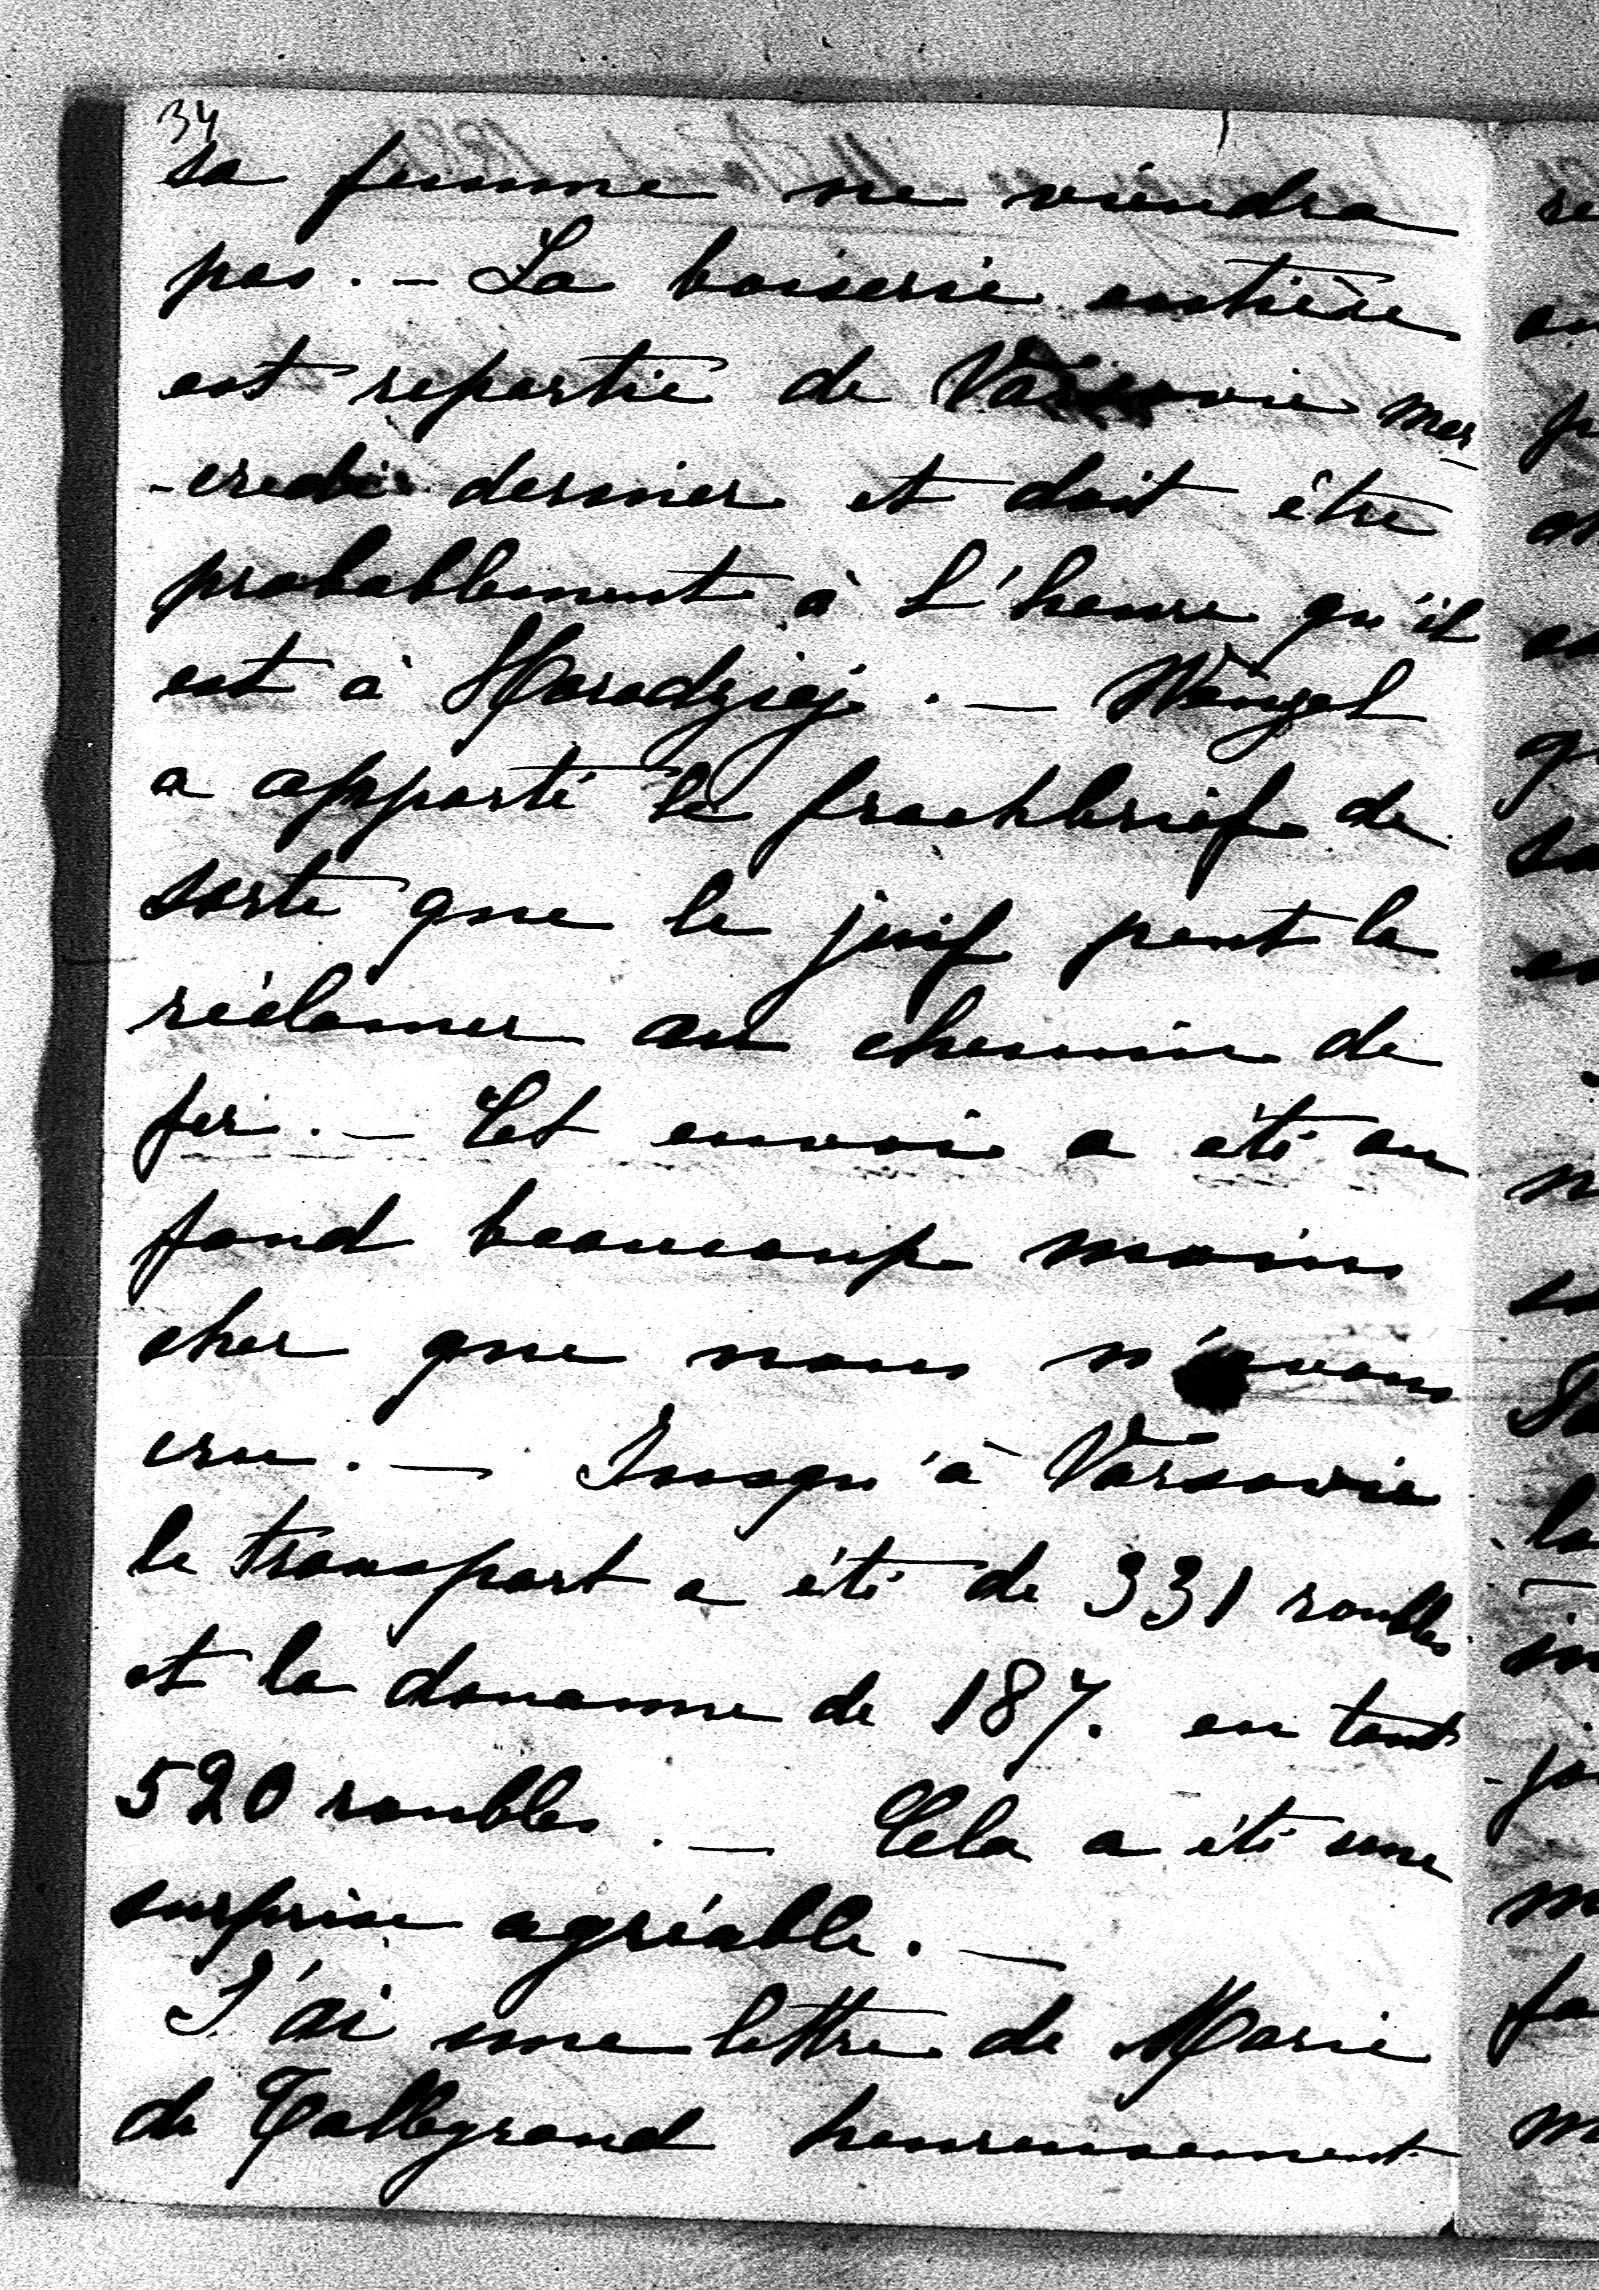 34
sa femme ne viendra
pas. - La boiserie entière
est repartie de Varsovie mer
-credi dernier et doit être
probablement à l'heure qu'il
est à Horodziej. - Wenzel
a apporté le frachbrief de
sorte que le juif peut la
réclamer au chemin de
fer. - Cet envoie a été au
fond beaucoup moins
cher que nous n'avons
cru. - Jusqu'à Varsovie
le transport a été de 331 roubles
et la douanne de 187. en tout
520 roubles. - Cela a été une
surprise agréable. -
J'ai une lettre de Marie
de Talleyrand heureusement